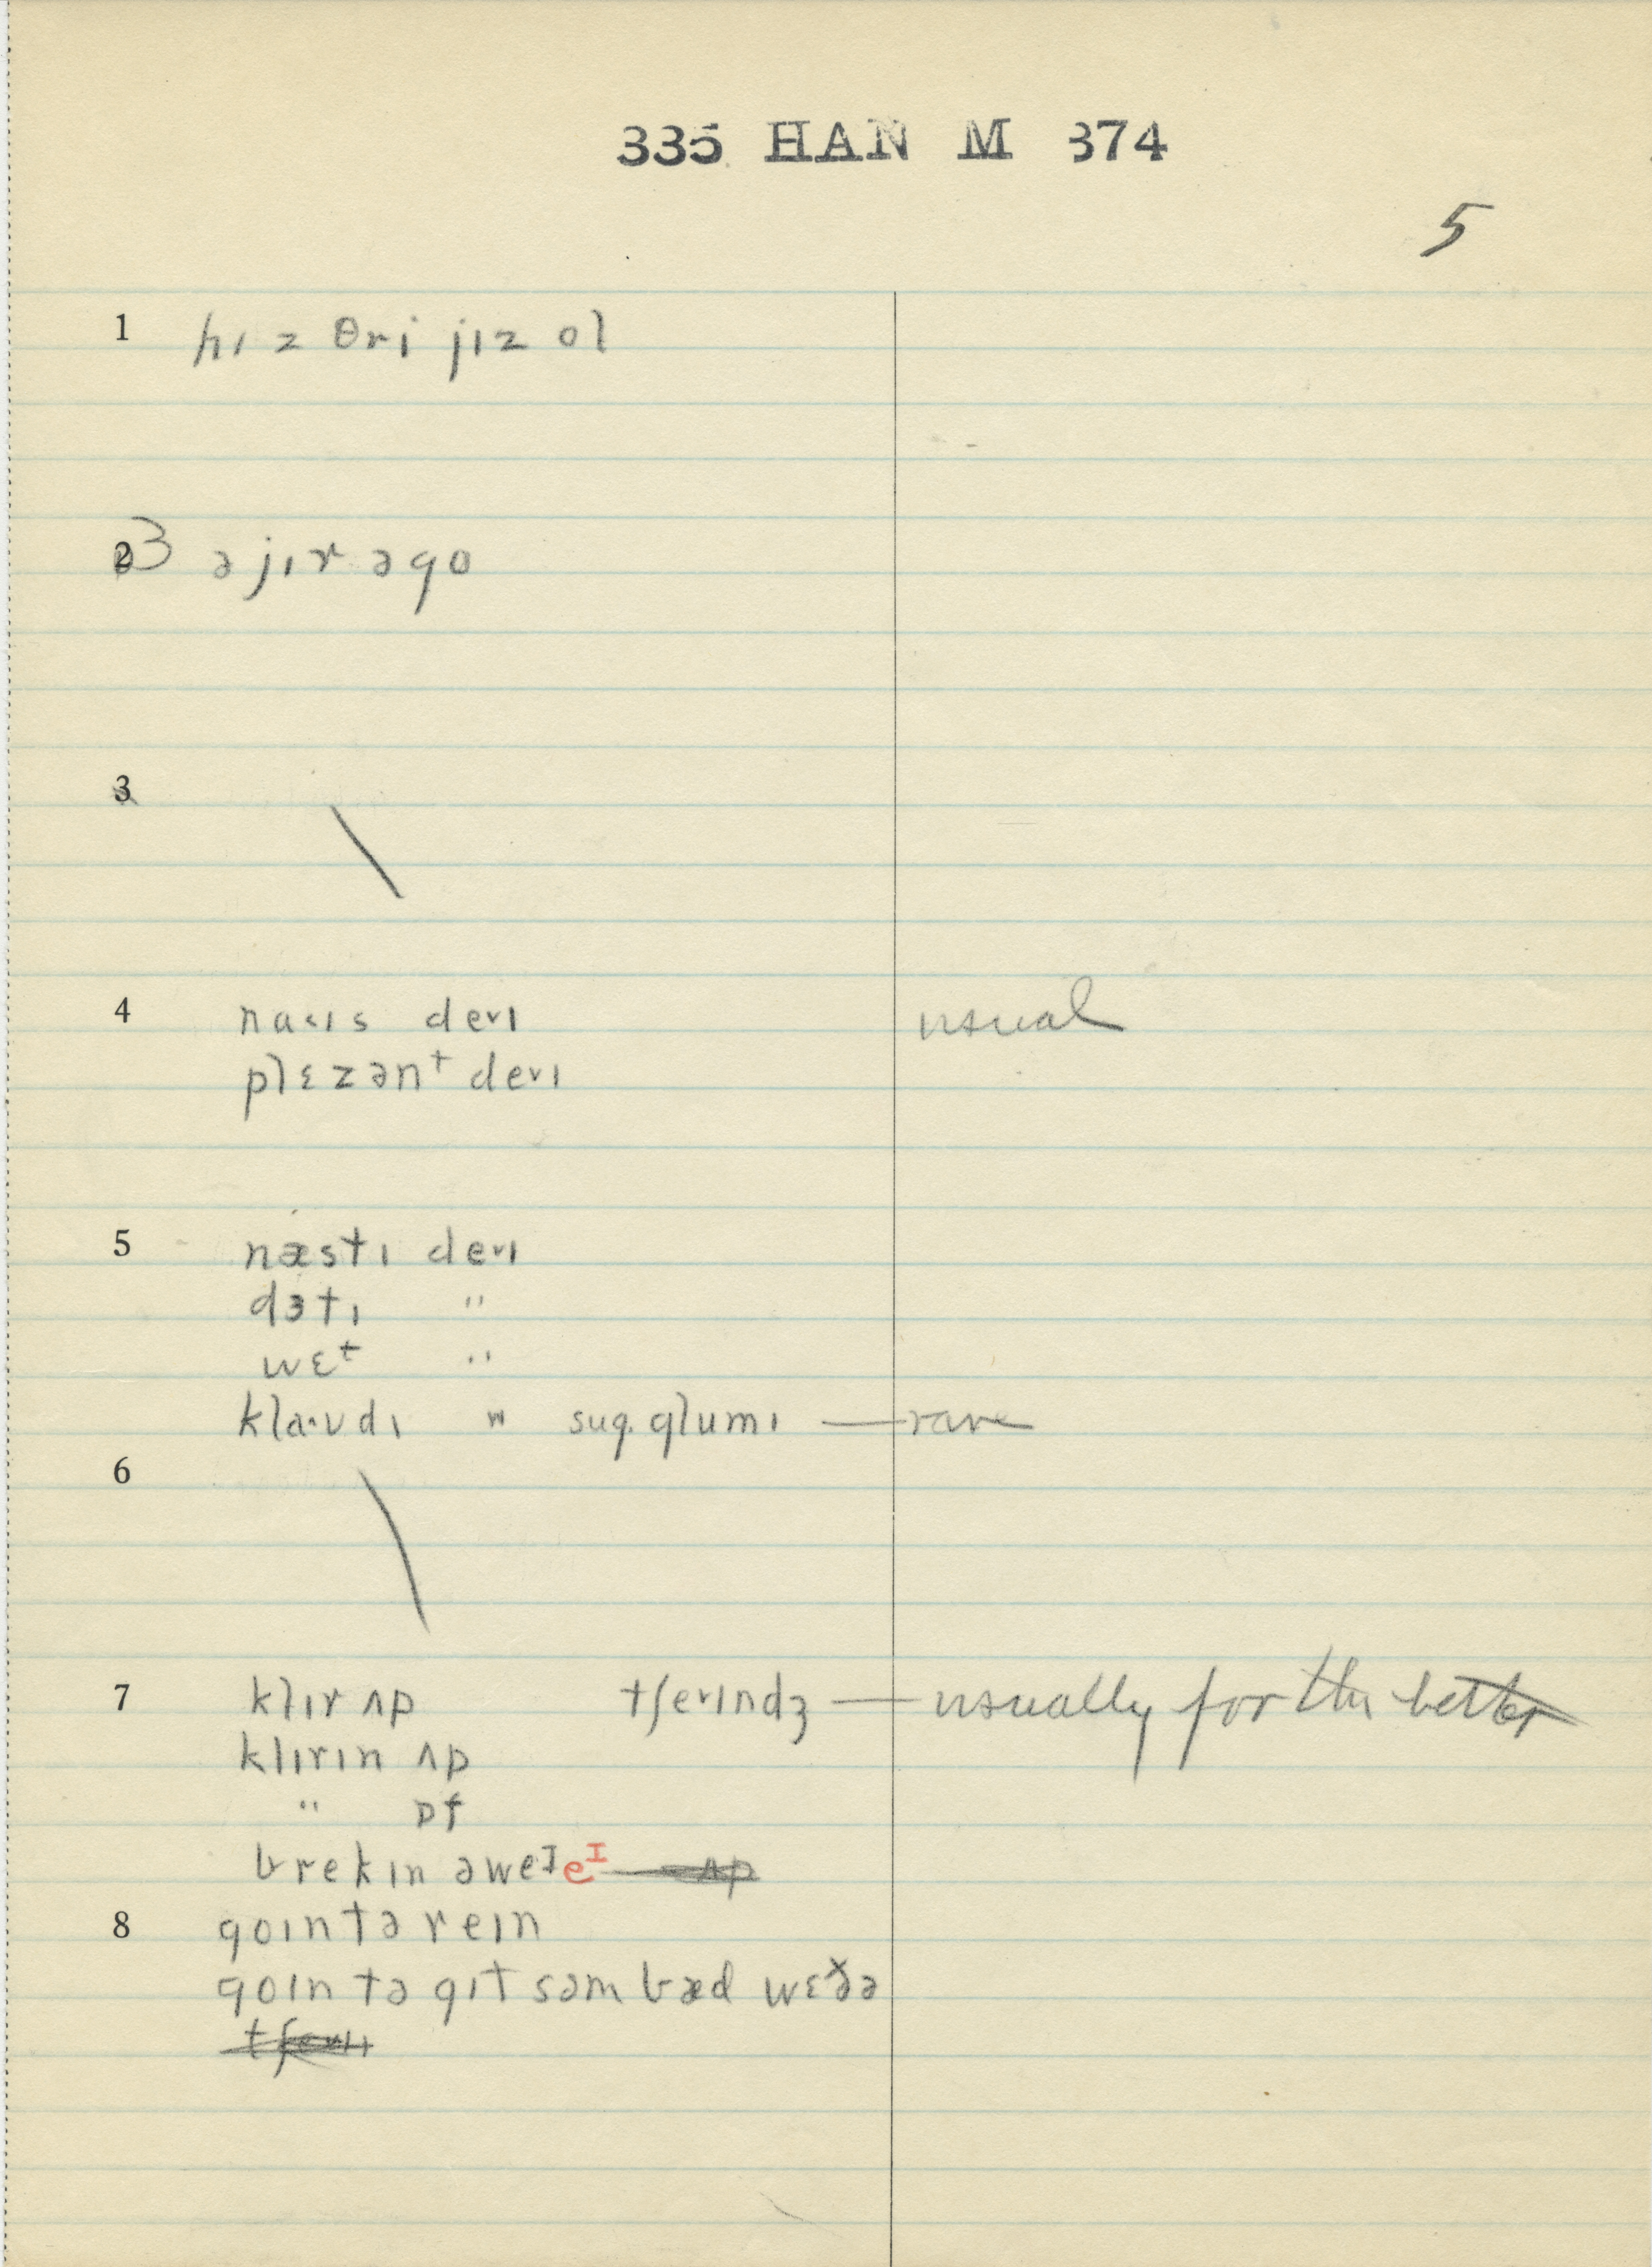 335 HAN M 374
5
1 hɪz θri jɪz ol
2 3 ə jɪr əgo
3
4 naˑɪs deˇɪ usual
plɛzənᵗ deˇɪ
5 næstɪ deˇɪ
dɜtɪ "
wɛᵗ "
klaˑʊdɪ " sug. glumɪ — rare
6
7 klɪr ʌp tʃeˇɪndʒ — usually for the better
klɪrɪn ʌp
" ɒf
brekɪn əweᴵ eᴵ ʌp
8 goɪn tə reɪn
goɪn tə gɪt səm bæd wɛðə